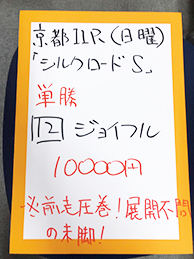 京都11R(日曜)
「シルクロードS」
単勝
12 ジョイフル
10000円
※前走圧巻!展開不問
の末脚!